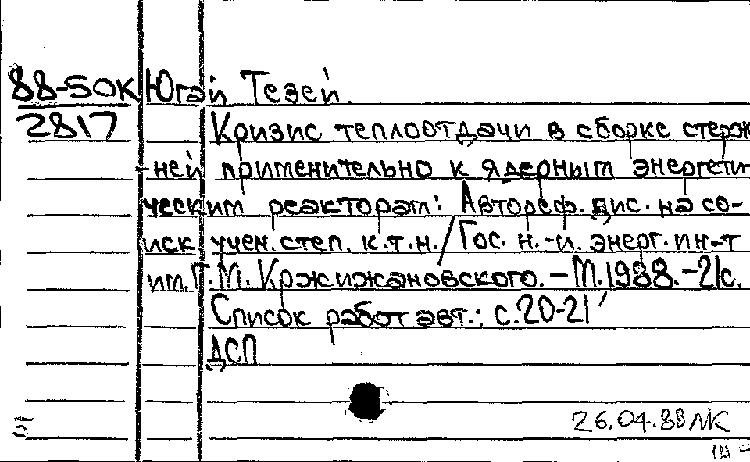 88-50К Югай Тезей.
2817 Кризис теплоотдачи в сборке стерж
ней применительно к ядерным энергети
ческим реакторам: Автореф. дис. на со-
иск. учен. степ. к.т.н. / Гос. н.-и. энерг. ин-т
им. Г. М. Кржижановского. – М. 1988. – 21с.
Список работ авт.: с. 20-21
ДСП
26.04.88 ЛК